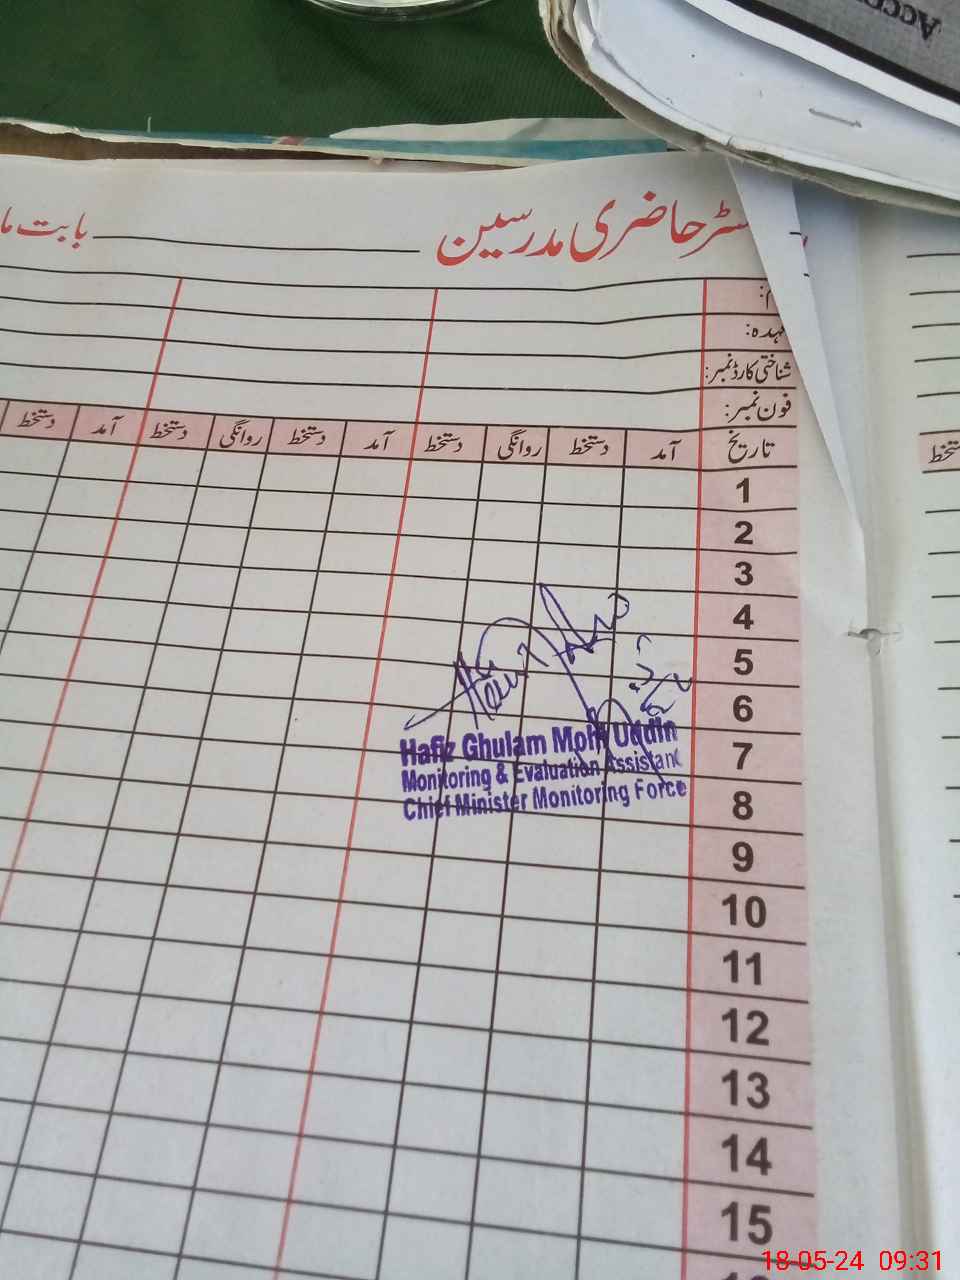 حاضری مدرسین
بابت
شناختی کارڈ نمبر:
فون نمبر:
تاریخ آمد دستخط روانگی دستخط آمد دستخط روانگی دستخط آمد دستخط
1
2
3
4
5
6
7
8
9
10
11
12
13
14
15
Hafiz Ghulam Mohy Uddin
Monitoring & Evaluation Assistant
Chief Minister Monitoring Force
18-05-24 09:31